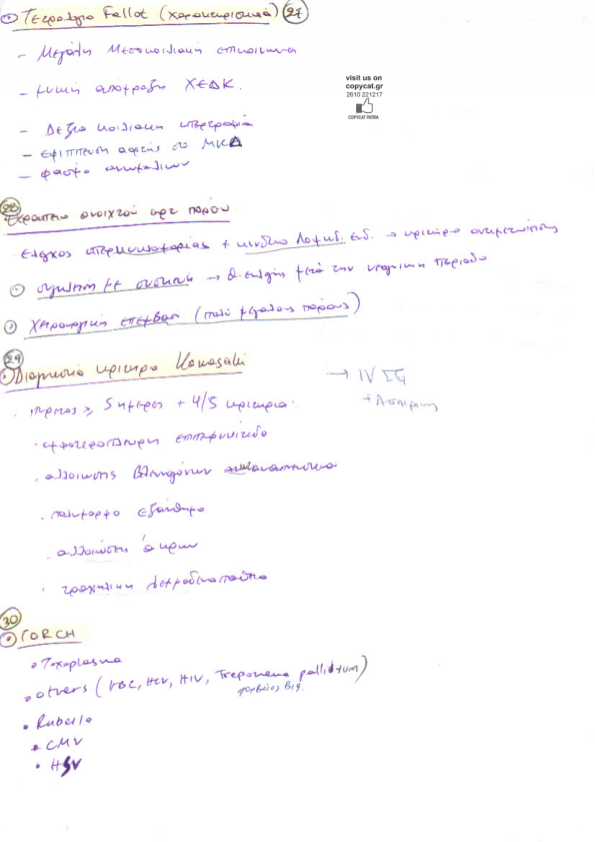 Τετραλογία Fallot (χαρακτηριστικά) 27
- Μεγάλη Μεσοκοιλιακή επικοινωνία
- μυική απόφραξη ΧΕΔΚ.
- Δεξιά κοιλιακή υπερτροφία
- Εφίππευση αορτής στο ΜΚΔ
- φάσμα ανωμαλιών
visit us on
copycat.gr
2610 221217
COPYCAT PATRA
28
Θεραπεία ανοιχτού αρτ πόρου
έλεγχος υπερκυκλοφορίας + κίνδυνο λοιμώδ. Ενδ. → κριτήριο αντιμετώπισης
σύγκλειση με συσκευή → θ. επιλογής μετά την νεογνική περίοδο
Χειρουργική επέμβαση (πολύ μεγάλους πόρους)
29
Διαγνωστικά κριτήρια Kawasaki
→ IV IG
+ Ασπιρίνη
πυρετός ≥ 5 ημέρες + 4/5 κριτήρια.
αμφοτερόπλευρη επιπεφυκίτιδα
αλλοιώσεις βλεννογόνων
πολύμορφο εξάνθημα
αλλοίωση άκρων
τραχηλική λεμφαδενοπάθεια
30
TORCH
Toxoplasma
others (VBC, HCV, HIV, Treponema pallidum)
παρβοϊός B19.
Rubella
CMV
HSV